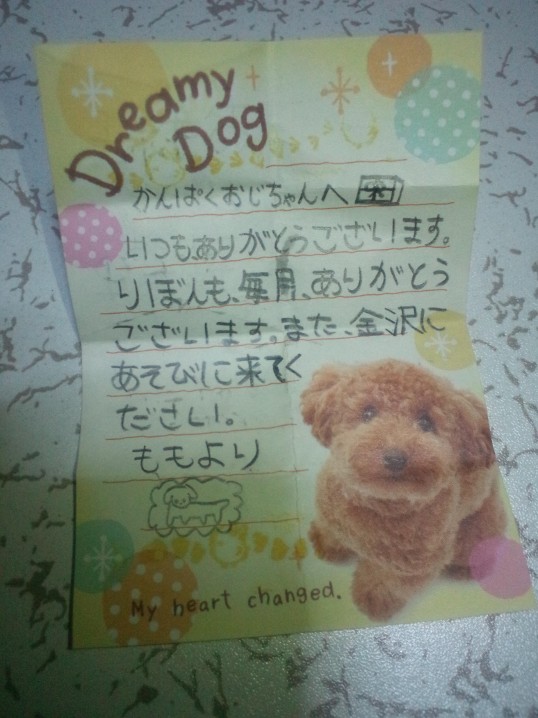 Dreamy
Dog
かんぱくおじちゃんへ
いつも、ありがとうございます。
りぼんも、毎月、ありがとう
ございます。また、金沢に
あそびに来てく
ださい。
ももより
My heart changed.